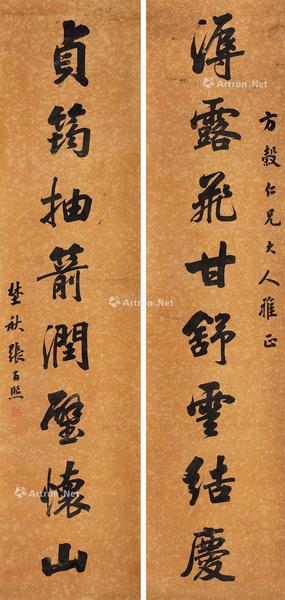 方毂仁兄大人雅正
溥露飛甘舒雲結慶
貞筠抽箭潤璧懷山
埜秋張百熙
Artron.Net
Artron.Net
Artron.Net
Artron.Net
Artron.Net
Artron.Net